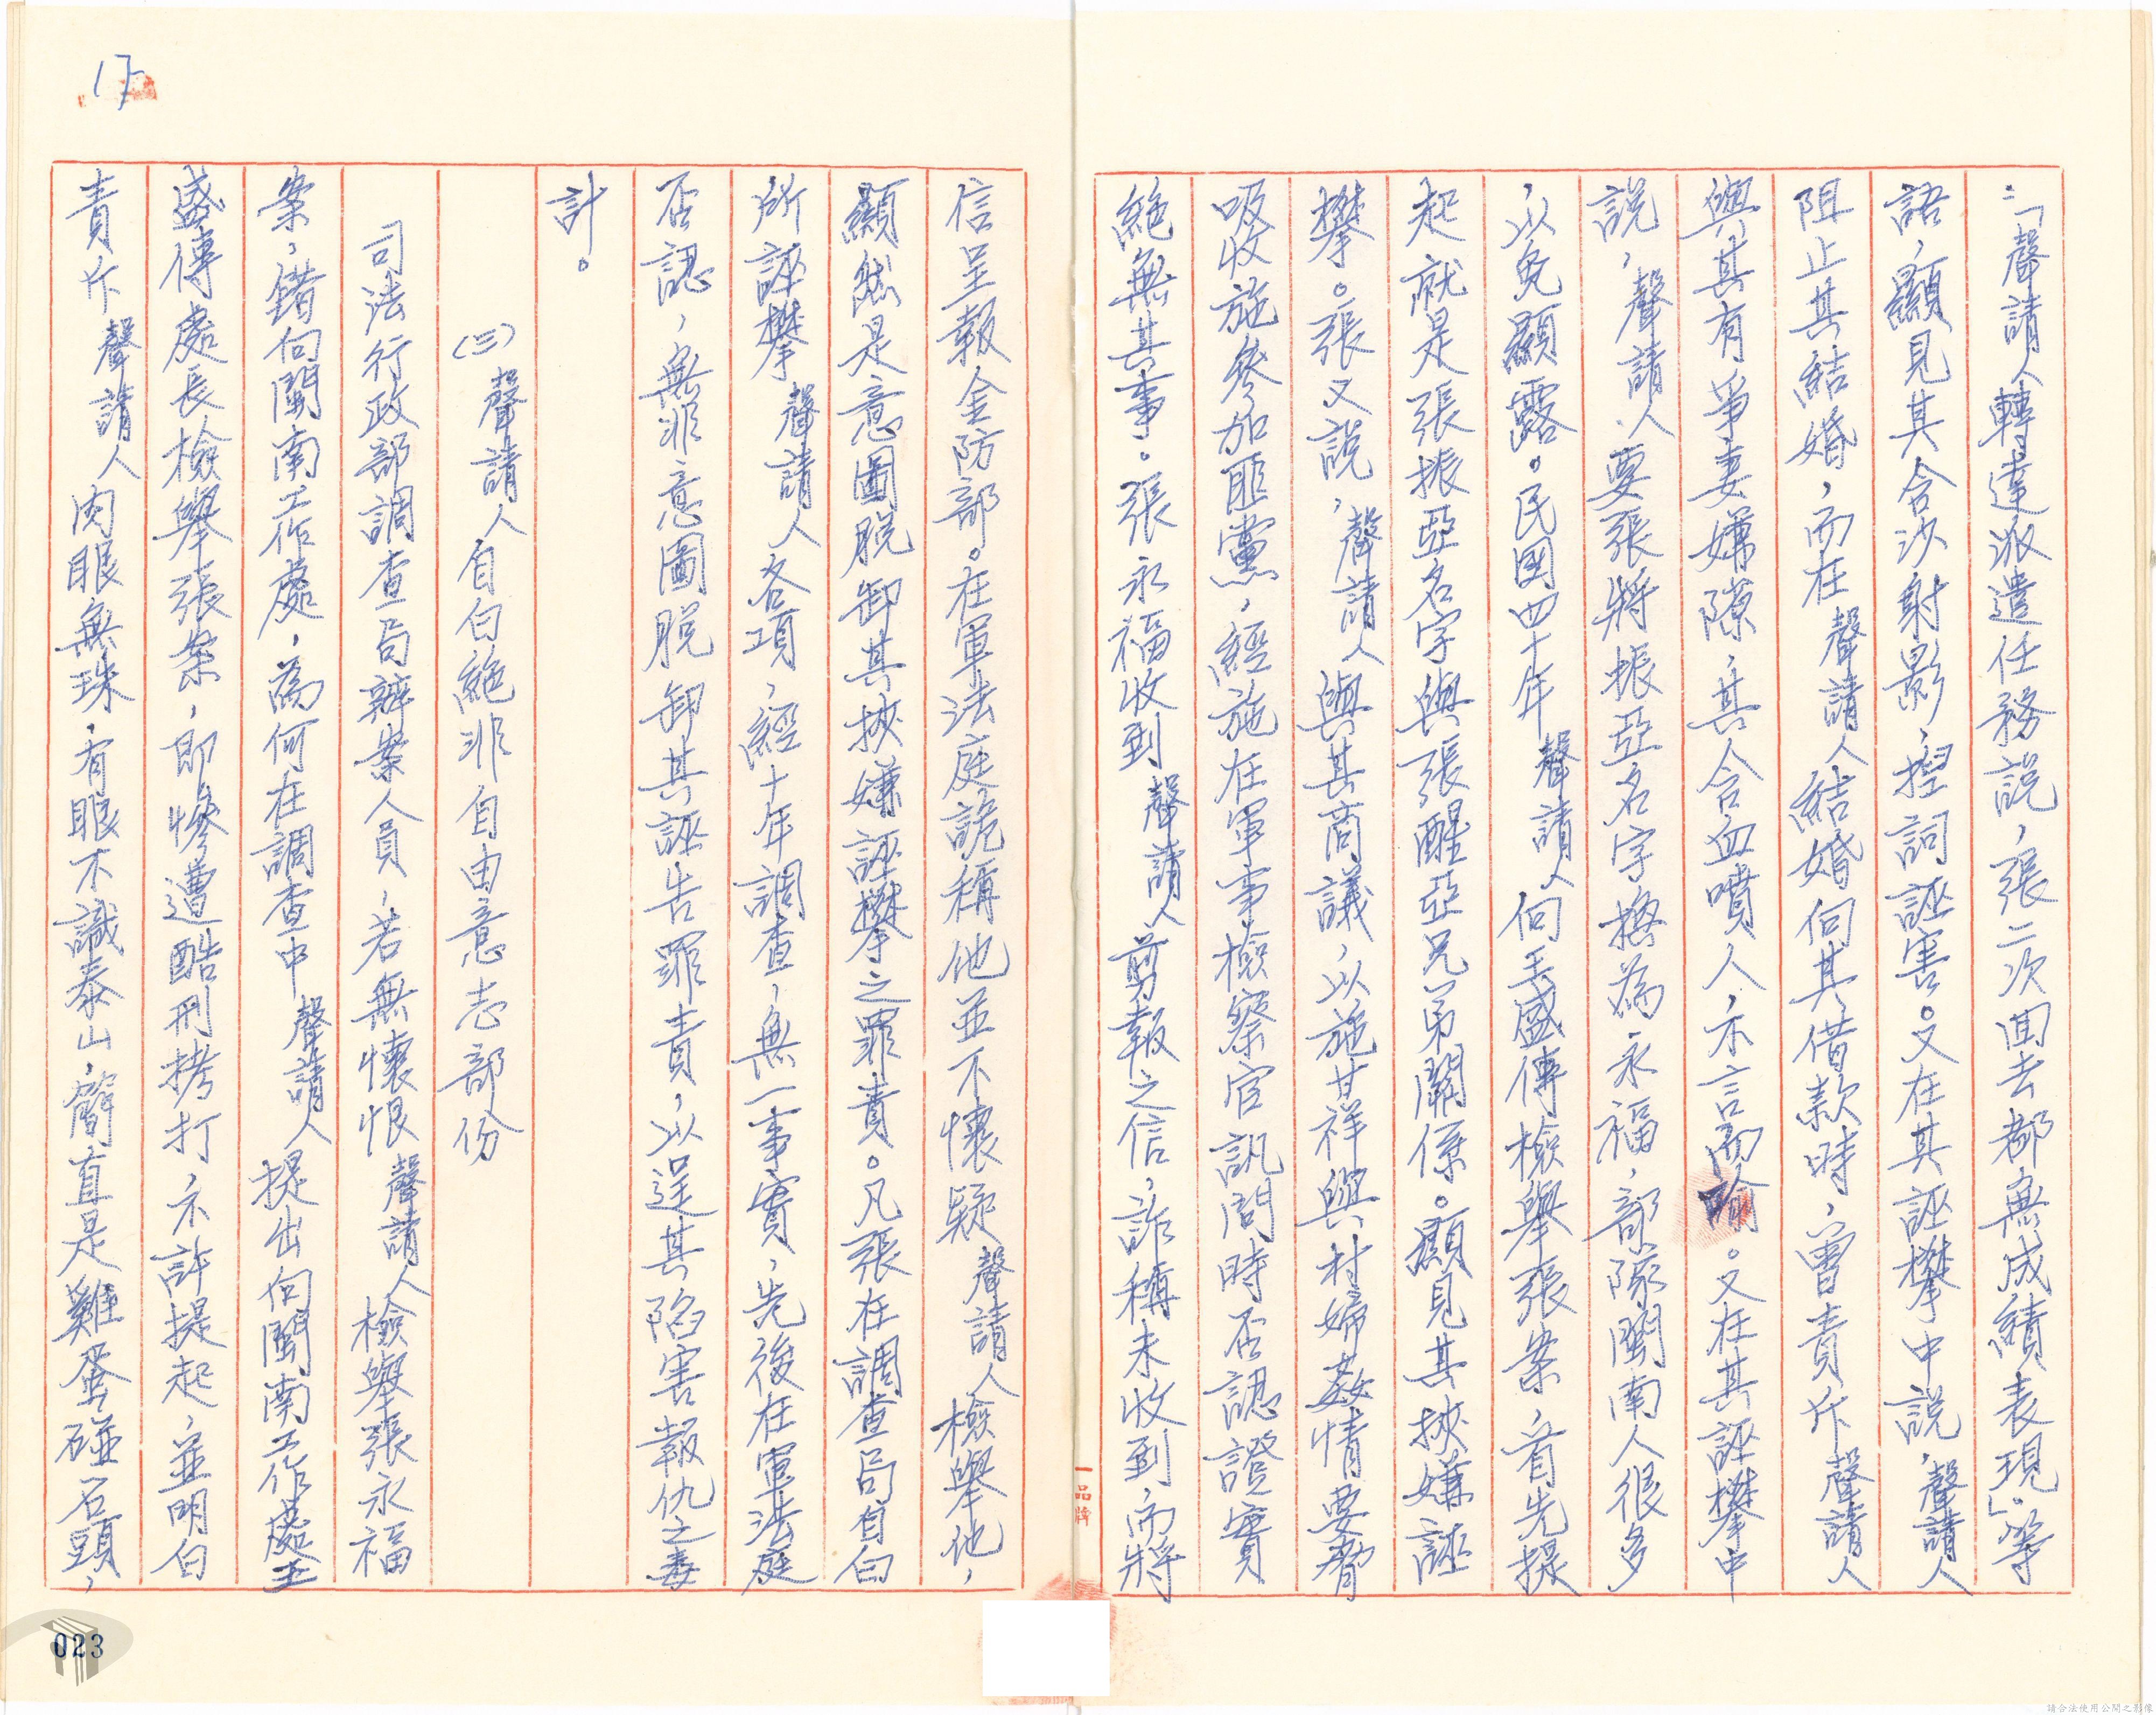 :「聲請人轉達派遣任務說，張二次回去都無成績表現」。等
語，顯見其含沙射影，捏詞誣害。又在其誣攀中說，聲請人
阻止其結婚，而在聲請人結婚向其借款時，曾責斥聲請人
與其有爭妻嫌隙，其含血噴人，不言而喻。又在其誣攀中
說，聲請人要張將振亞名字換為永福，部隊閩南人很多
，以免顯露。民國四十年聲請人向王盛傳檢舉張案，首先提
起就是張振亞名字與張醒亞兄弟關係。顯見其挾嫌誣
攀。張又說，聲請人與其商議，以施甘祥與村婦姦情要脅
吸收施參加匪黨，經施在軍事檢察官訊問時否認證實
絕無其事。張永福收到聲請人剪報之信，詐稱未收到，而將
一品牌
信呈報金防部。在軍法庭詭稱他並不懷疑聲請人檢舉他，
顯然是意圖脫卸其挾嫌誣攀之罪責。凡張在調查局自白
所誣攀聲請人各項，經十年調查，無一事實，先後在軍法庭
否認，無非意圖脫卸其誣告罪責，以逞其陷害報仇之毒
計。
(三)聲請人自白絕非自由意志部份
司法行政部調查局辦案人員，若無懷恨聲請人檢舉張永福
案，錯向閩南工作處，為何在調查中聲請人提出向閩南工作處王
盛傳處長檢舉張案，即慘遭酷刑拷打，不許提起，並明白
責斥聲請人肉眼無珠，有眼不識泰山，簡直是雞蛋碰石頭，
023
請合法使用公開之影像